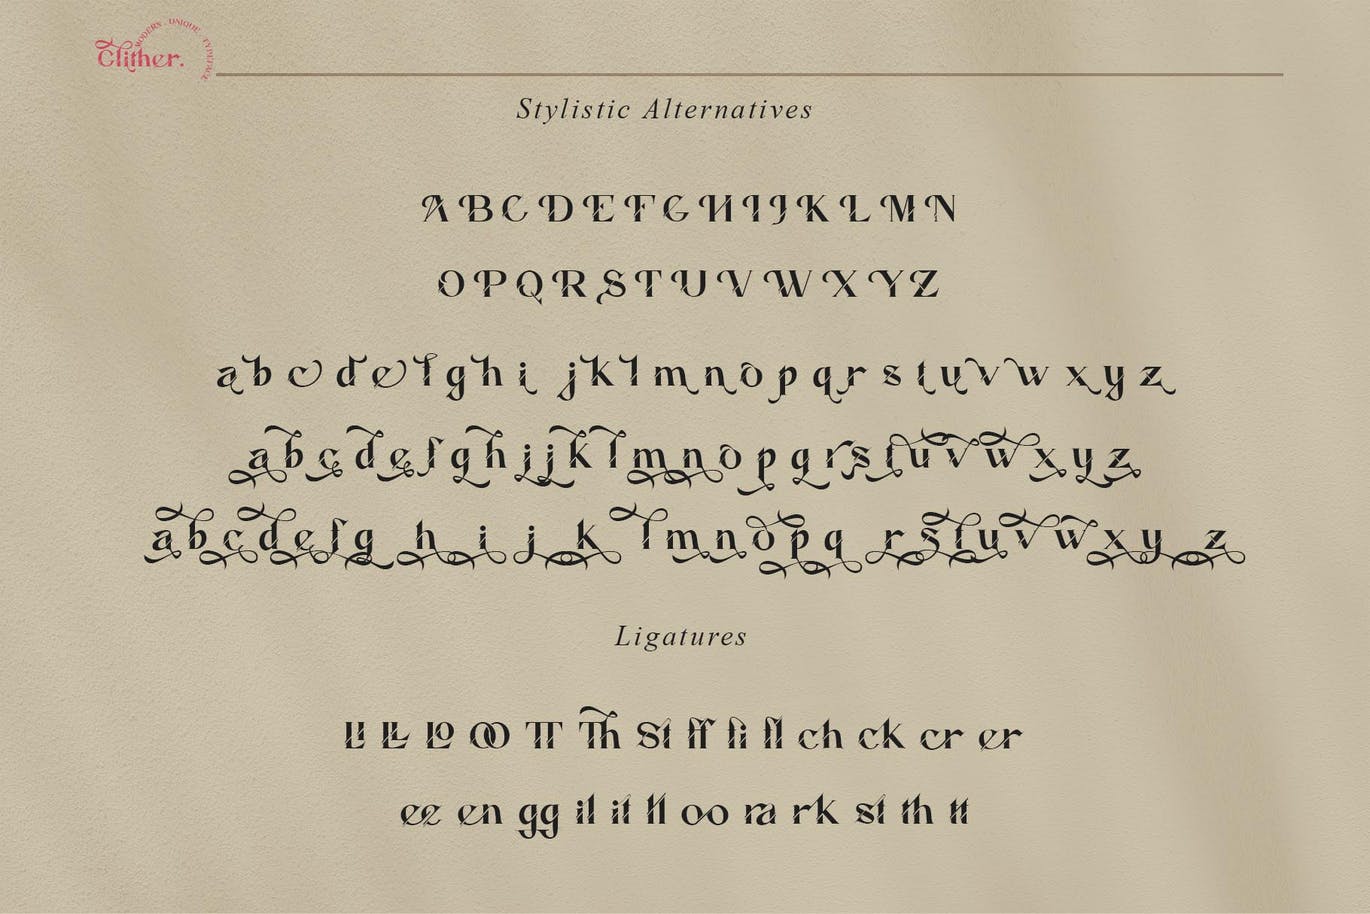 MODERN · UNIQUE · TYPEFACE
Clither.
Stylistic Alternatives
A B C D E F G H I J K L M N
O P Q R S T U V W X Y Z
a b c d e f g h i j k l m n o p q r s t u v w x y z
a b c d e f g h i j k l m n o p q r s t u v w x y z
a b c d e f g h i j k l m n o p q r s t u v w x y z
Ligatures
LI LL LO OO TT Th St ff fi fl ch ck cr er
ee en gg il it ll oo ra rk st th tt